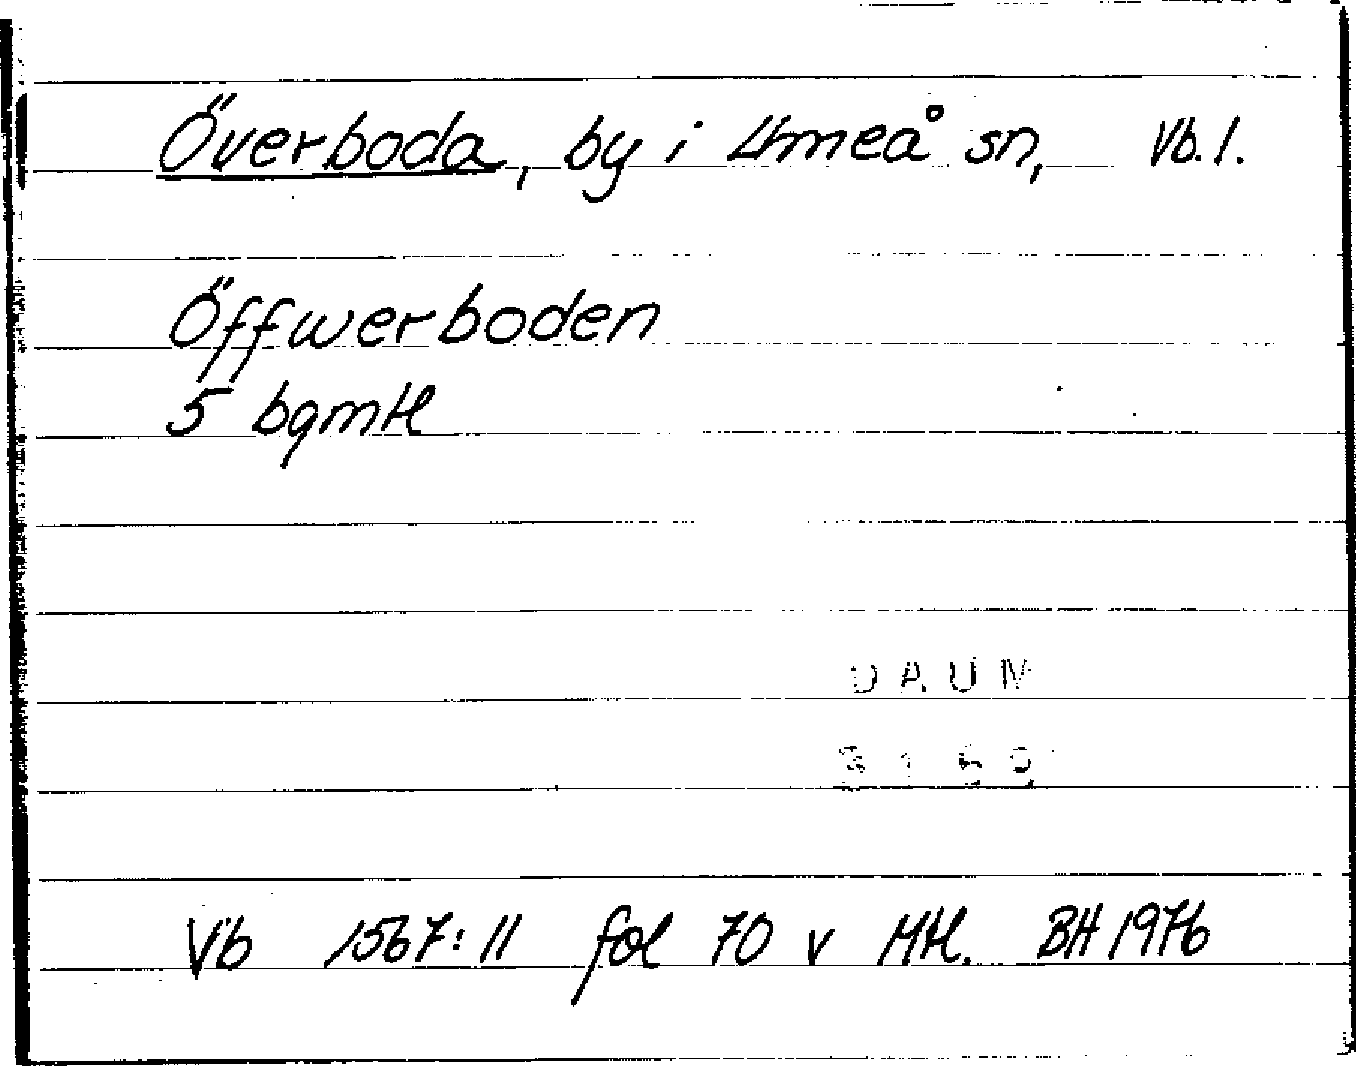 Överboda, by i Umeå sn, Vb. 1.
Öffwerboden
5 bgmtl
DAUM
Vb 1567:11 fol 70 v Mtl. BH 1976